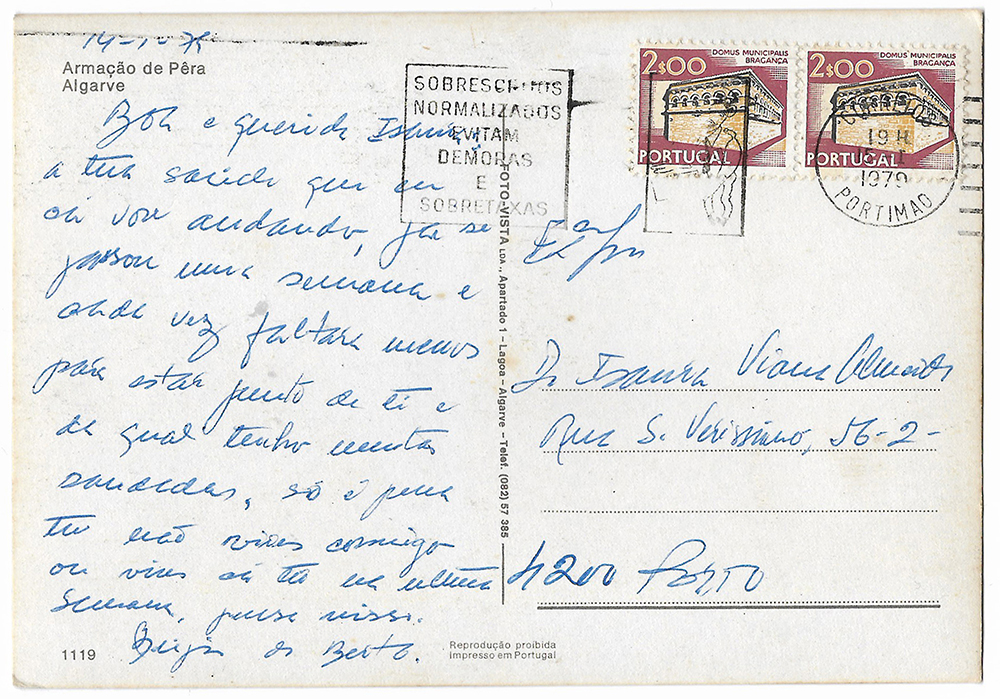 Armação de Pêra
Algarve
Boa e querida
a tua saúde que eu
cá vou andando, já se
passou uma semana e
cada vez faltará menos
para estar junto de ti e
da qual tenho muitas
saudades, só é pena
tu não vires comigo
ou vires cá tu na última
semana, pensa nisso.
Beijos do Berto.
1119
SOBRESCRITOS
NORMALIZADOS
EVITAM
DEMORAS
E
SOBRETAXAS
2$00 DOMUS MUNICIPALIS
BRAGANÇA
PORTUGAL
2$00 DOMUS MUNICIPALIS
BRAGANÇA
PORTUGAL
CORREIOS
19 H
1979
PORTIMAO
FOTO-VISTA LDA., Apartado 1 – Lagoa – Algarve – Telef. (082) 57 385
Isaura Viana Almeida
Rua S. Veríssimo, 56-2-
4200 Porto
Reprodução proibida
Impresso em Portugal